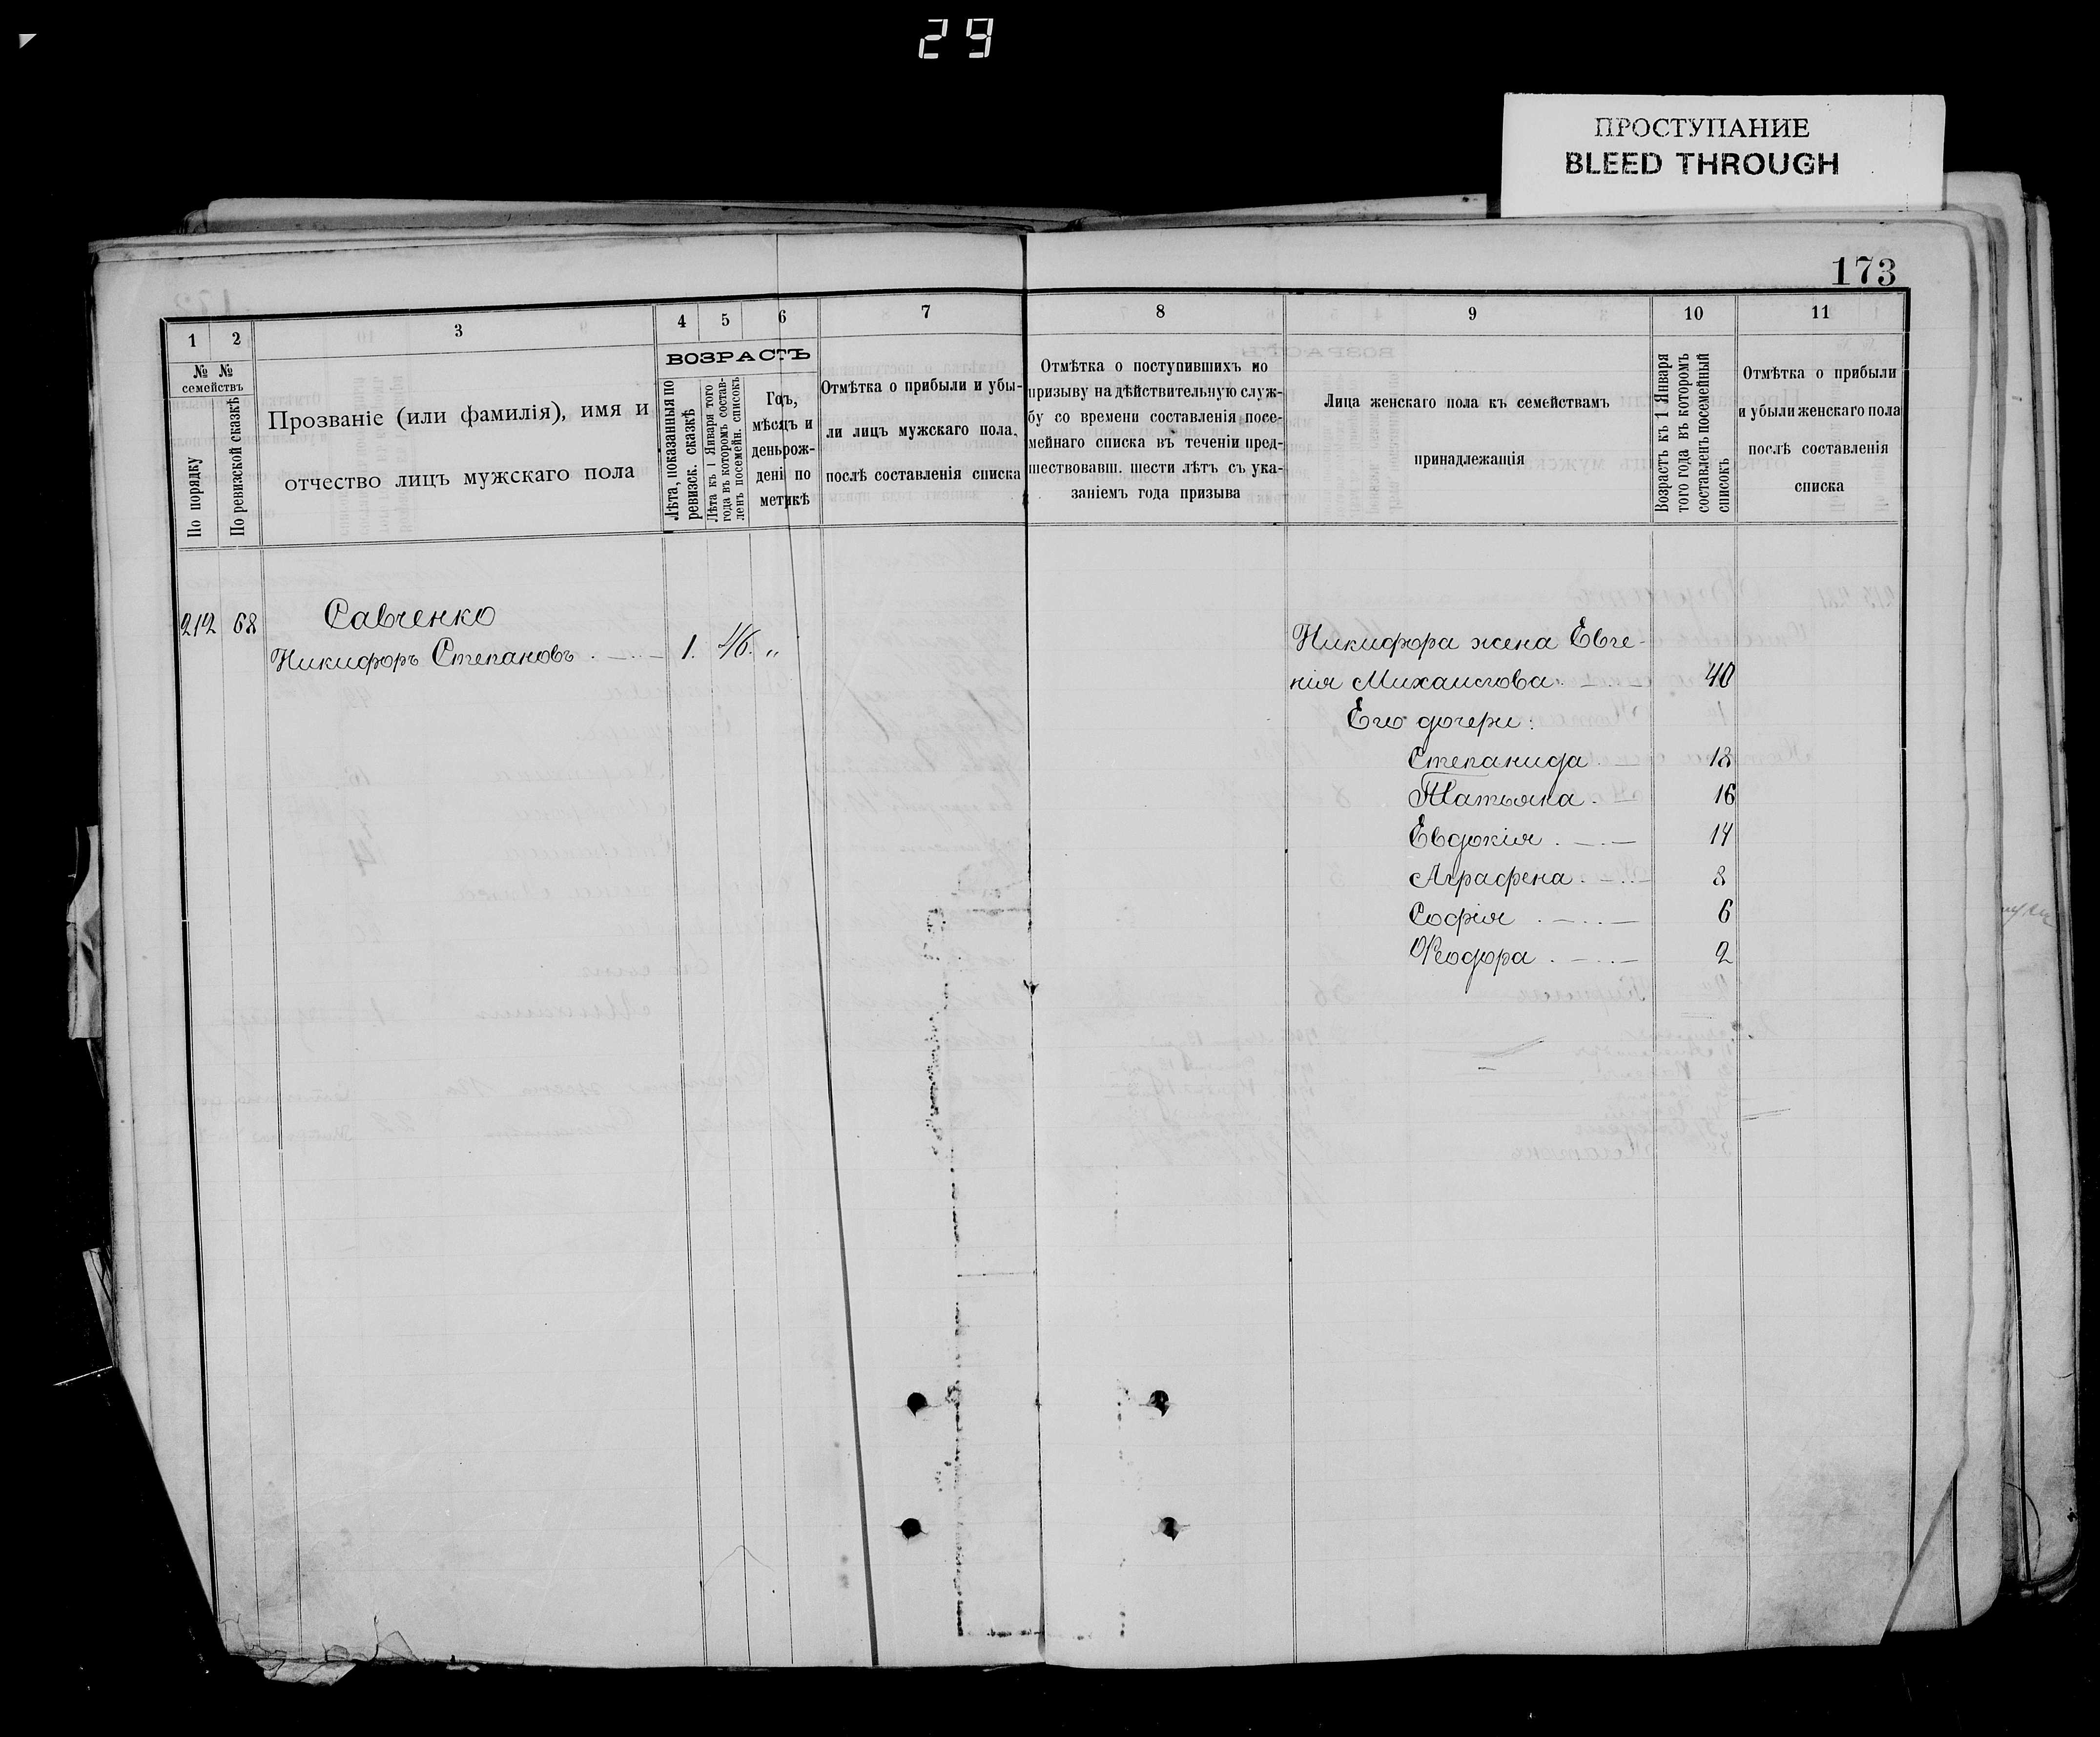 29
ПРОСТУПАНИЕ
BLEED THROUGH
173
1 2 3 4 5 6 7 8 9 10 11
№ № семействъ
По порядку
По ревизской сказкѣ
Прозваніе (или фамилія), имя и
отчество лицъ мужскаго пола
ВОЗРАСТЪ
Лѣта, показанныя по
ревизск. сказкѣ
Лѣта къ 1 Января того
года въ которомъ состав-
ленъ посемейн. списокъ
Годъ,
мѣсяцъ и
день рож-
дені по
метикѣ
Отмѣтка о прибыли и убы-
ли лицъ мужскаго пола,
послѣ составленія списка
Отмѣтка о поступившихъ по
призыву на дѣйствительную служ-
бу со времени составленія посе-
мейнаго списка въ теченіи пред-
шествовавш. шести лѣтъ съ ука-
заніемъ года призыва
Лица женскаго пола къ семействамъ
принадлежащія
Возрастъ къ 1 Января
того года въ которомъ
составленъ посемейный
списокъ
Отмѣтка о прибыли
и убыли женскаго пола
послѣ составленія
списка
212 68 Савченко
Никифоръ Степановъ 1. 46. „
Никифора жена Евге-
нія Михаилова 40
Его дочери:
Степанида 18
Татьяна 16
Евдокія 14
Аграфена 8
Софія 6
Ѳеодора 2